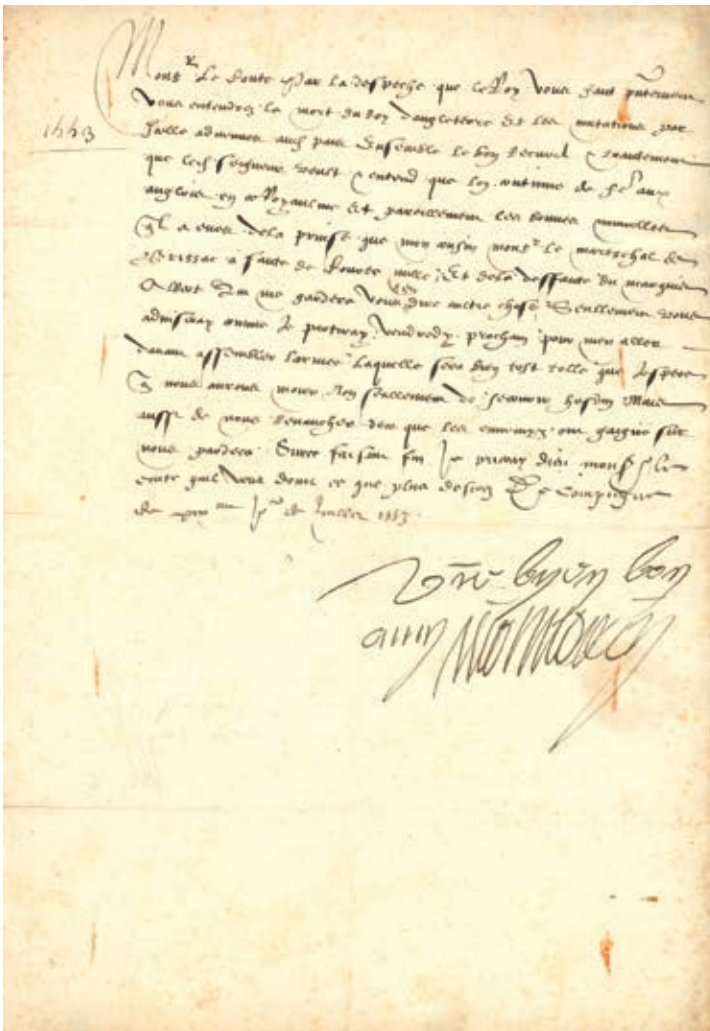 Monsr Le Conte Par la despeche que le Roy vous faict pntement
vous entendrez la mort du Roy dangleterre Et les mutations par
1553
dela advenues aud pais Ensemble le bon Recueil & traictement
que led seigneur veult & entend que lon continue de fe aux
anglois en ce Royaulme Et pareillement les bonnes nouvelles
quil a eues dela prinse que mon cousin monsr le mareschal de
Brissac a faicte de ville Et dela deffaicte du marquis
Albert Qui me gardera vous en dire autre chose Seullement vous
adviseray comme Je partiray vendredy prochain pour men aller
davant assembler larmee Laquelle sera bien tost telle que Jespere
q nous aurons moien Non seullement de secourir hesdin Mais
aussi de nous revancher de ce que les ennemys ont gaigne sur
nous Surce faisant fin Je prieray dieu monsr le
conte quil vous doint ce que plus desirez De Compiegne
de Juillet 1553
Vre byen bon
amy Montmorency